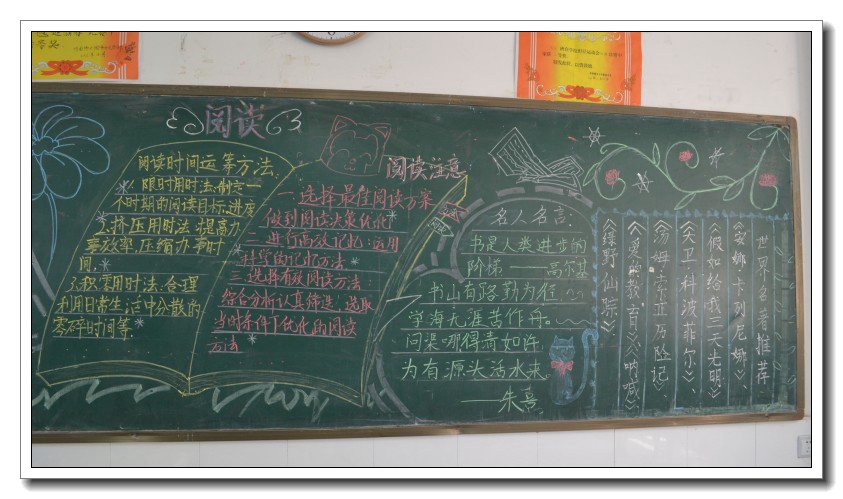 阅读
阅读时间运筹方法:
1. 限时用时法:制定一
个时期的阅读目标、进度
2.挤压用时法:提高力
率,压缩力
间,
3.积零用时法:合理
利用日常生活中分散的
零碎时间等.
阅读注意:
一.选择最佳阅读方案
做到阅读决策优化
二.进行高效记忆:运用
科学的记忆方法
三.选择有效阅读方法:
综合分析认真筛选,选取
当时条件下优化的阅读
方法
名人名言:
书是人类进步的
阶梯 ——高尔基
书山有路勤为径
学海无涯苦作舟。
问渠哪得清如许
为有源头活水来
——朱熹
世界名著推荐
《安娜·卡列尼娜》、
《假如给我三天光明》
《大卫·科波菲尔》、
《汤姆·索亚历险记》
《爱的教育》《呐喊》
《绿野仙踪》